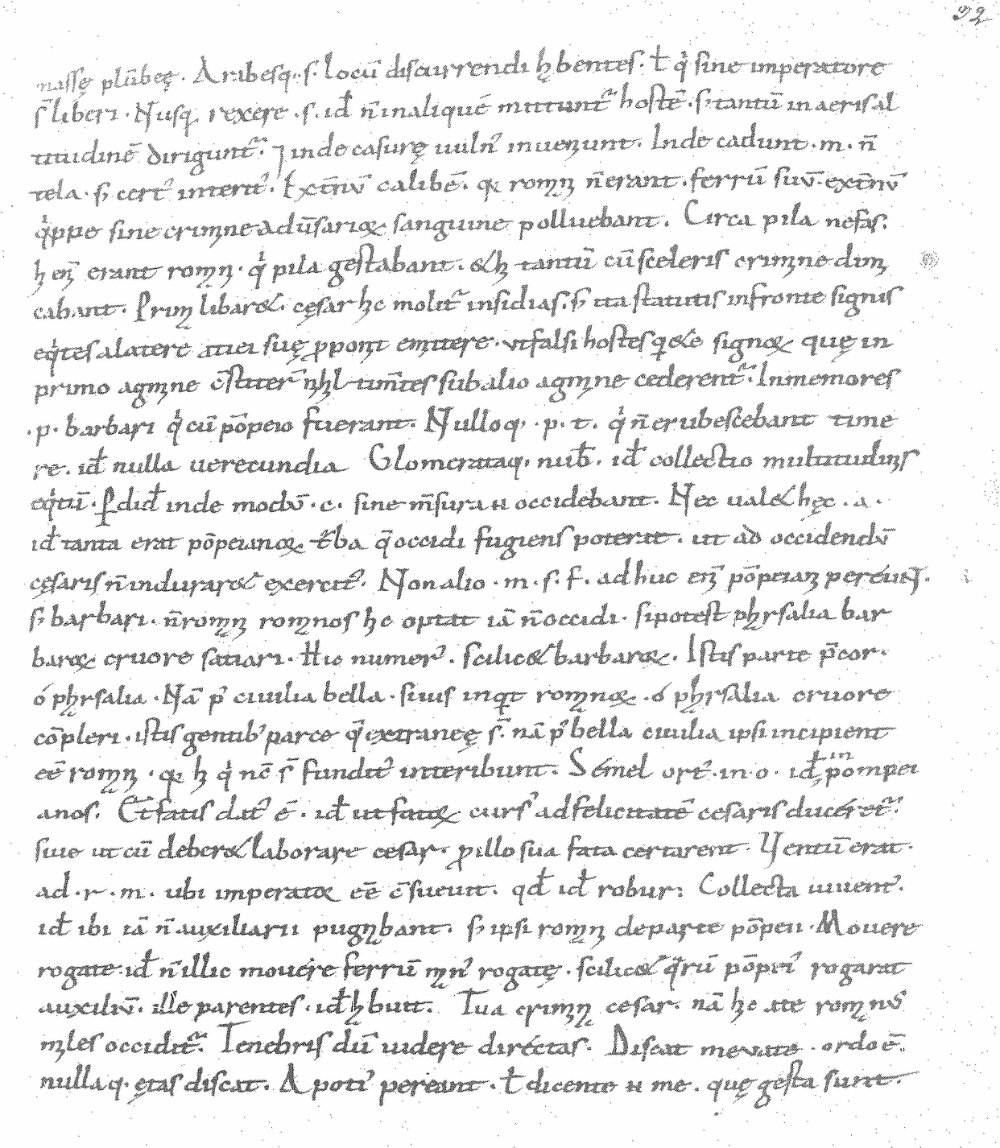 92
nassę plūbeę. Aribesq. s. locū discurrendi hbentes. ł qͥ sine imperatore
s̄ liberi. Nusq̄ rexere. s. id̄ n̄ inaliquē mittunt᷑ hostē. s; tantū inaeris al
titudinē diriguntᷣ. ⁊ inde casurę uuln᾽ inuenunt. Inde cadunt. m. n̄
tela. s; cert᾽ interit᾽. Extn̄ū calibē. q romn n̄erant. ferrū suū. extn̄ū
qͥppe sine crimne adūsarioꝝ sanguine polluebant. Circa pila nefas.
h en̄ erant romn. qͥ pila gestabant. &h tantū cū sceleris crimne dim
cabant. Prim libar&. cęsar hc molit᾽ insidias. s; ita statutis infronte signis
eqͥtes alatere aciei suę ꝓpont emittere. ut falsi hostes q&e signoꝝ quę in
primo agmne c̄stiter̄ nhl timētes sub alio agmne cederentᷣ. Inmemores
.p. barbari qͥ cū pōpeio fuerant. Nulloq. p. t. qͥ n̄erubescebant time
re. id̄ nulla uerecundia Glomerataq. nub̄. id̄ collectio multitudins
eqͥtū. ꝑdid̄ inde modū. c. sine m̄sura n occidebant. Nec ual& hęc. a.
id̄ tanta erat pōpeianoꝝ t̄ba q̄ occidi fugiens poterat. ut ad occidendū
cęsaris n̄ indurar& exercit᾽. Non alio. m. s. f. ad huc en̄ pōpeian pereunt.
s; barbari. n̄ romn romnos hc optat iā n̄ occidi. si potest phrsalia bar
baroꝝ cruore satiari. Hic numer᾽. scilic& barbaroꝝ. Istis parte p̄cor.
ó phrsalia. Nā p᾽ ciuilia bella. siuis inqt romnoꝝ. ó phrsalia cruore
cōpleri. istis gentib᾽ parce q̄ extraneę s̄. nā p᾽ bella ciuilia ipsi incipient
eē romn. q h qͥ nc̄ s̄ fundit᾽ interibunt. Sémel ort᾽. in. o. id̄ in pompei
anos. Et̄ fatis dat᾽ ē. id̄ ut fatoꝝ curs᾽ ad felicitatē cesaris ducéretᷣ.
siue ut cū deber& laborare cesar. ꝓ illo sua fata certarent. Uentū erat.
ad. r. m. ubi imperatoꝝ eē c̄sueuit. qd̄ id̄ robur: Collecta iuuent᾽.
id̄ ibi iā n̄ auxiliarii pugnbant. s; ipsi romn departe pōpeii. Mouere
rogate. id̄ n̄ illic mouére ferrū mn᾽ rogatę. scilic& q̄rū pōpei᾽ rogarat
auxiliū. ille parentes. id̄ hbuit. Tua crimn cesar. nā hc ate romnū
mles occiditᷣ. Tenebris dū uidere diréctas. Discat mevate. ordo ē.
nullaq. ętas discat. A poti᾽ pereant. ł dicente n me. quę gesta sunt.